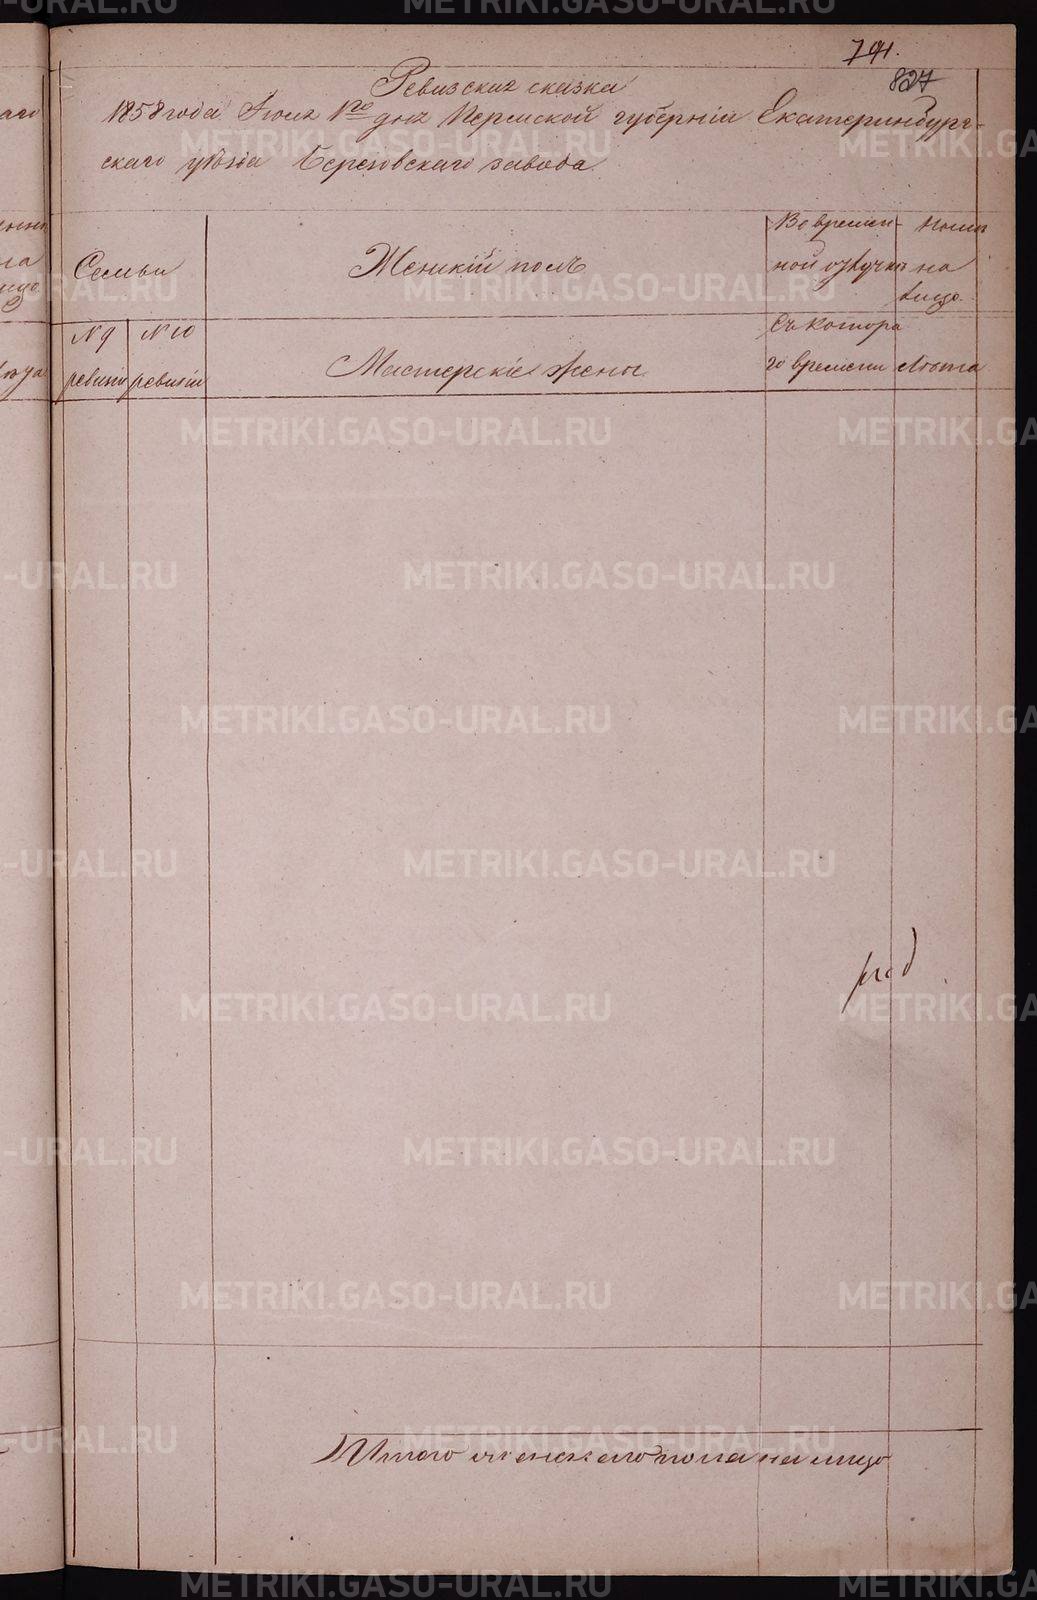 791.
827
Ревизская сказка
1858 года Июня 1го дня Пермской губерніи Екатеринбург-
скаго уѣзда Березовскаго завода
Семьи
Женскій полъ
Во времен-
ной отлучкѣ
Нынѣ
на
лицо
№ 9
ревизіи
№ 10
ревизіи
Мастерскіе жены
Съ котора
го времени
Лѣта
Итого женскаго пола на лицо
METRIKI.GASO-URAL.RU